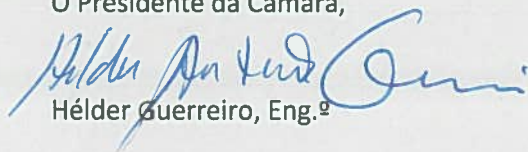 O Presidente da Câmara,
Hélder António Guerreiro
Hélder Guerreiro, Eng.º